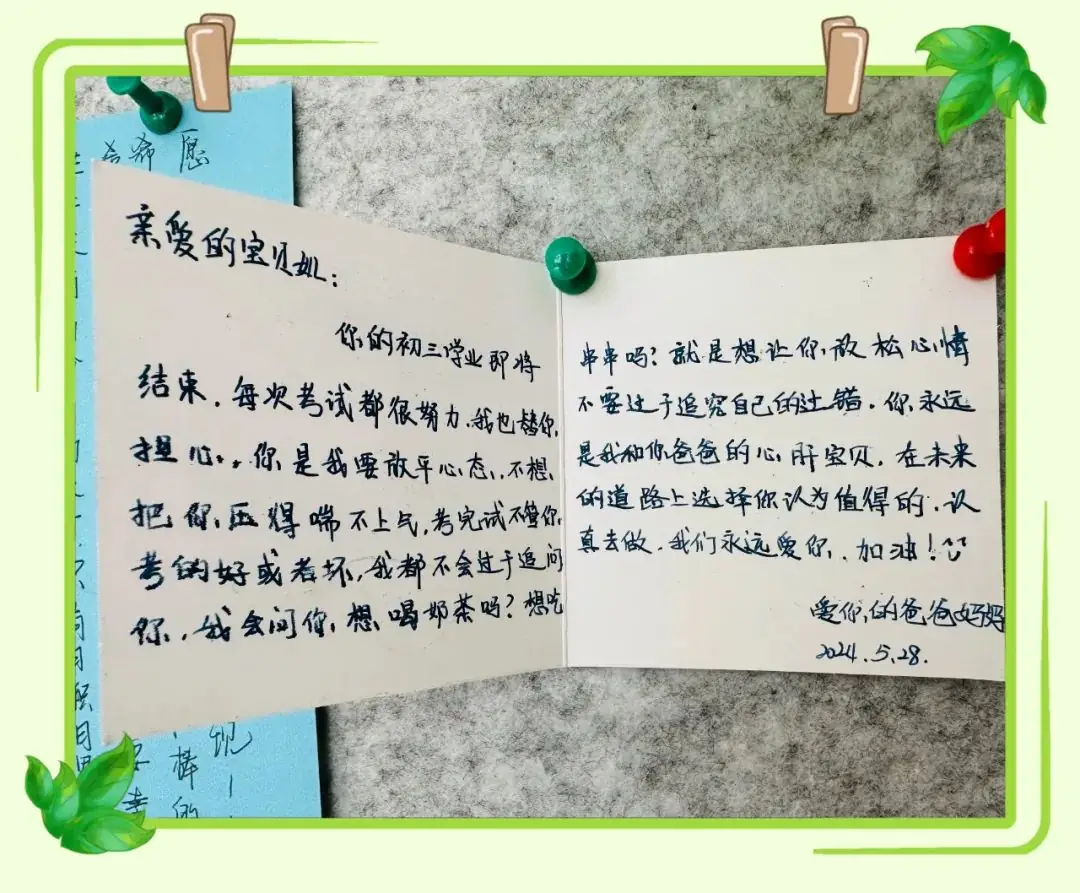 亲爱的宝贝女儿：
你的初三学业即将
结束，每次考试都很努力，我也替你
担心，，你是我要放平心态，不想
把你压得喘不上气，考完试不管你
考的好或者坏，我都不会过于追问
你，我会问你，想喝奶茶吗？想吃
串串吗？就是想让你放松心情
不要过于追究自己的过错，你永远
是我和你爸爸的心肝宝贝，在未来
的道路上选择你认为值得的，认
真去做，我们永远爱你，加油！
爱你的爸爸妈妈
2024.5.28.
愿
希
现！
棒的